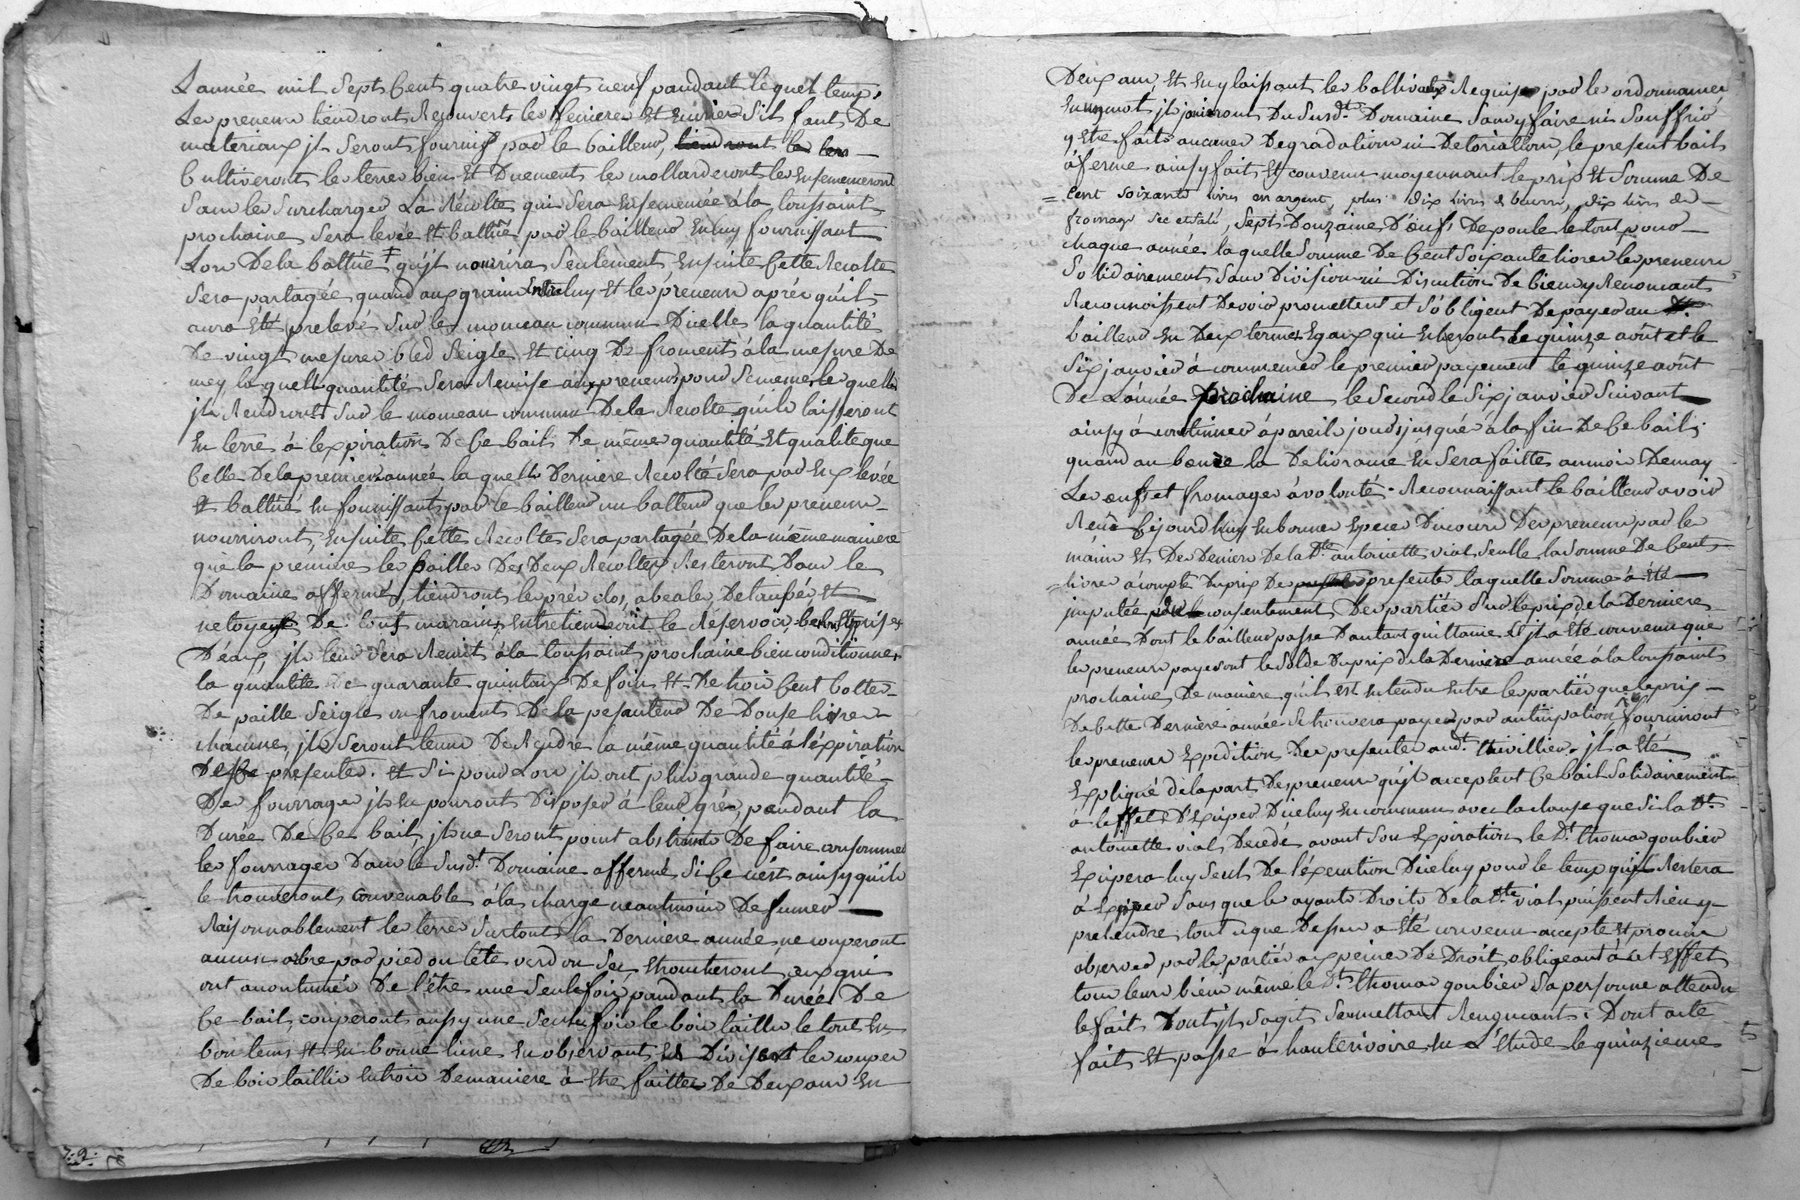 L'année mil Sept Cent quatre vingt neuf pandant lequel temps
Les preneurs tiendront Recouverts les feniere Et Ecurier Sil faut De
materiaux jls Seront fournis par le bailleur, tiendront les ters
Cultiveront les terres bien Et Duement les mollarderont les Ensemenceront
Sans les Surcharger La Récolte qui Sera Ensemencée à la toussaint
prochaine Sera levée Et battue par le bailleur En luy fournissant
Lors De la battue qu'jl nourrira Seulement Ensuite Cette Recolte
Sera partagée quand aux grains Entre luy Et les preneurs après qu'il
aura Eté prelevé Sur les monceau commun D'icelles la quantité
De vingt mesures bled Seigle Et cinq De froment à la mesure De
mey laquelle quantité Sera Remise aux preneurs pour Semences lesquelles
jls Rendront Sur le monceau commun De la Recolte qu'ils laisseront
En terre à l'expiration De Ce bail De même quantité Et qualité que
Celle De la premiere année laquelle Derniere Recolte Sera par Eux levée
Et battue En fournissant par le bailleur un batteur que les preneurs
nourriront, Ensuite Cette Recolte Sera partagée De la même maniere
que la premiere les pailles Des Deux Recoltes Resteront Dans le
Domaine affermé, tiendront les prés clos, abealés Detaupés Et
netoyés De tous marains, Entretiendront le Réservoir, bes Et prises
D'eau, jls leur Sera Remit à la toussaint prochaine bien conditionnés
la quantité De quarante quintaux De foin Et De trois Cent bottes
De paille Seigle ou froment De la pesanteur De Douse livres
chacune, jls Seront tenus De Rendre la même quantité à l'expiration
Des presentes. Et Si pour Lors jls ont plus grande quantité
De fourrages jls En pourront Disposer à leur gré, pendant la
Durée De Ce bail, jls ne Seront point abstraints De faire consommer
les fourrages Dans le Susdt. Domaine affermé, Si Ce n'est ainsy qu'ils
le trouveront convenable à la charge neantmoins De fumer
Raisonnablement les terres Surtout la Derniere année, ne couperont
aucun arbre par pied ou tête verd ou Sec, Etroncheront ceux qui
ont acoutumés De l'être une Seule fois pandant la Durée De
Ce bail, couperont aussy une Seule fois le bois taillis le tout En
bon tems Et En bonne lune En observant De Diviser les coupes
De bois taillis En trois De maniere à Etre faittes De Deux ans En
Deux ans, Et En y laissant les balliveaux Requis par les ordonnances
En un mot jls jouiront Du Susdt. Domaine Sans y faire ni Souffrir
y Etre fait aucunes Degradations ni Deteriations, le present bail
à ferme ainsy fait Et convenu moyennant le prix Et Somme De
Cent soixante livres en argent, plus Dix livres de beurre, Dix livres de
fromage sec et salé, Sept Douzaines D'œufs De poule le tout pour
chaque année laquelle Somme De Cent Soixante livres les preneurs
Solidairement Sans Division ni Discution De biens y Renoncants
Reconnoissent Devoir promettent et S'obligent De payer au
bailleur En Deux termes Egaux qui Echeront le quinze août et le
Six janvier à commencer le premier payement le quinze août
De L'année prochaine le Second le Six janvier Suivant
ainsy à continuer à pareils jours jusqué à la fin De Ce bail,
quand au beure la Delivrance En Sera faitte au mois De may
Les œufs et fromages à volonté. Reconnaissant le bailleur avoir
Reçu Cejourd'huy En bonnes Especes Du cours Des preneurs par les
mains Et Des Deniers De la Dte. antoinette vial Seulle la Somme De Cent
livres àcompte Du prix Des presentes laquelle Somme à Eté
imputée Du consentement Des parties Sur le prix de la Derniere
année Dont le bailleur passe D'autant quittance Et jl a été convenu que
les preneurs payeront le Solde Du prix de la Derniere année à la toussaint
prochaine De maniere qu'il est Entendu Entre les parties que le prix
De Cette Derniere année Se trouvera payé par anticipation, fourniront
les preneurs Expedition Des presentes audt. thivillier. jl a Eté
Expliqué de la part Des preneurs qu'jl acceptent Ce bail Solidairement
a leffet D'Exiper D'icelluy En commun avec la clause que Si la Dte
antoinette vial Decede avant Son Expiration le Dt. thomas goubier
Exipera luy Seul De l'éxecution D'iceluy pour le temps qu'jl Restera
à Exiper Sans que les ayants Droits De la Dte. vial puissent Rien y
pretendre, tout Ce que Dessus a Eté convenu accepté Et promis
observer par les parties aux peines De Droit, obligeant à cet Effet
tous leurs biens même le Dt. thomas goubier Sa personne attendu
le fait Dont jl S'agit Soumettant Renoncant. Dont acte
fait Et passé à hauterivoire En L'étude le quinzieme